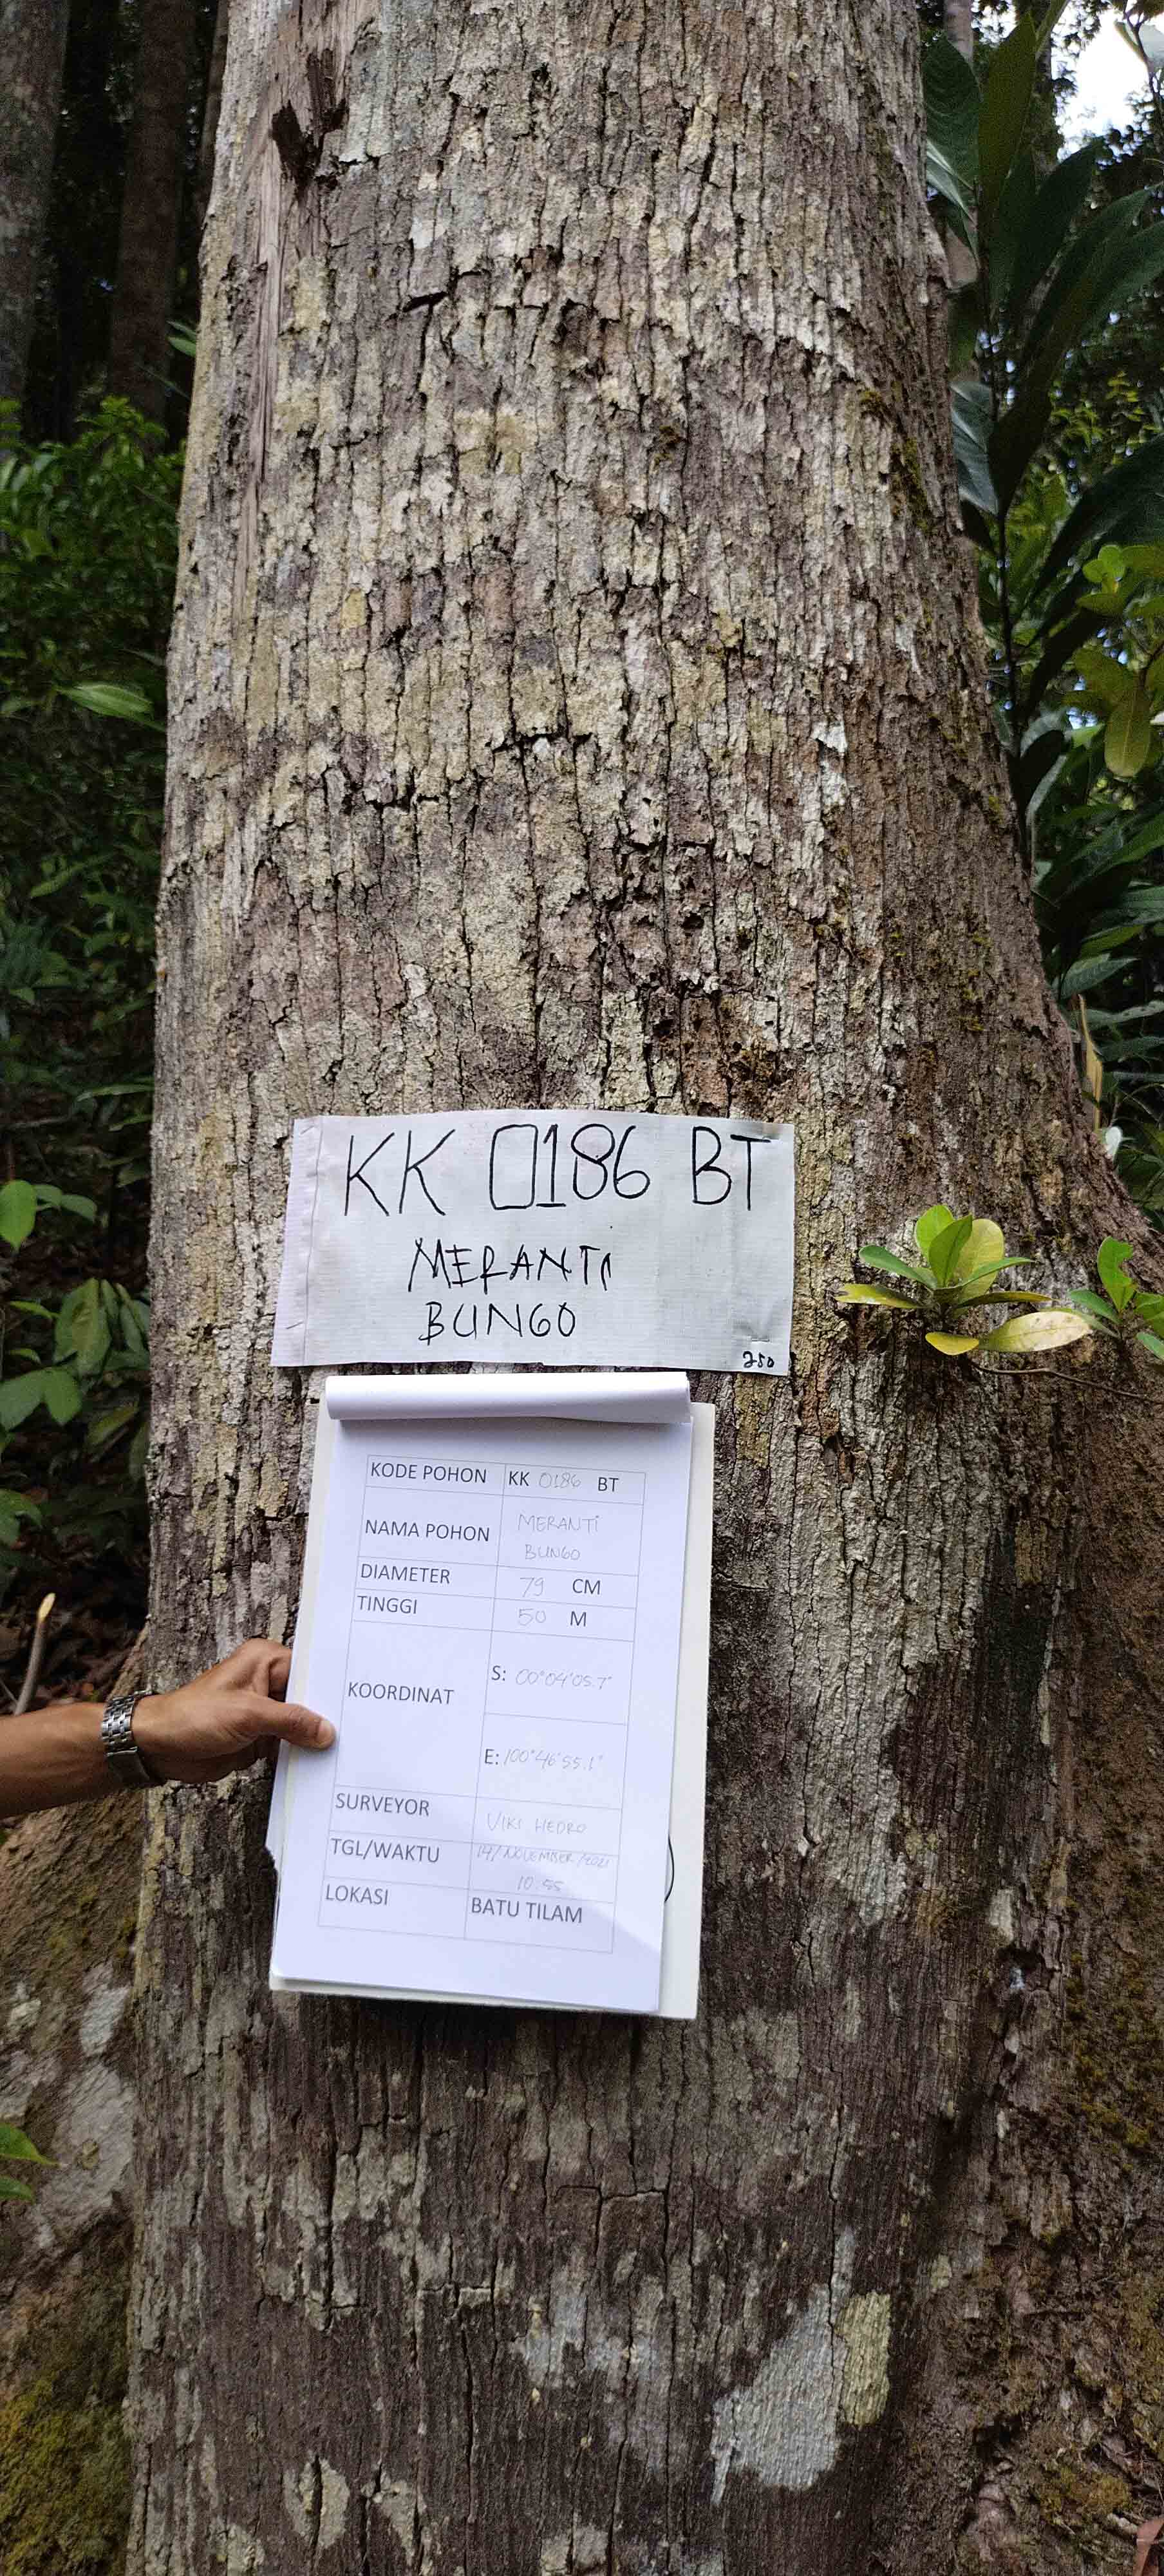 KK 0186 BT
MERANTI
BUNGO
250
KODE POHON KK 0186 BT
NAMA POHON MERANTI
BUNGO
DIAMETER 79 CM
TINGGI 50 M
KOORDINAT S: 00°04'05.7"
E: 100°46'55.1"
SURVEYOR VIKI HEDRO
TGL/WAKTU 14/NOVEMBER/2021
10:55
LOKASI BATU TILAM